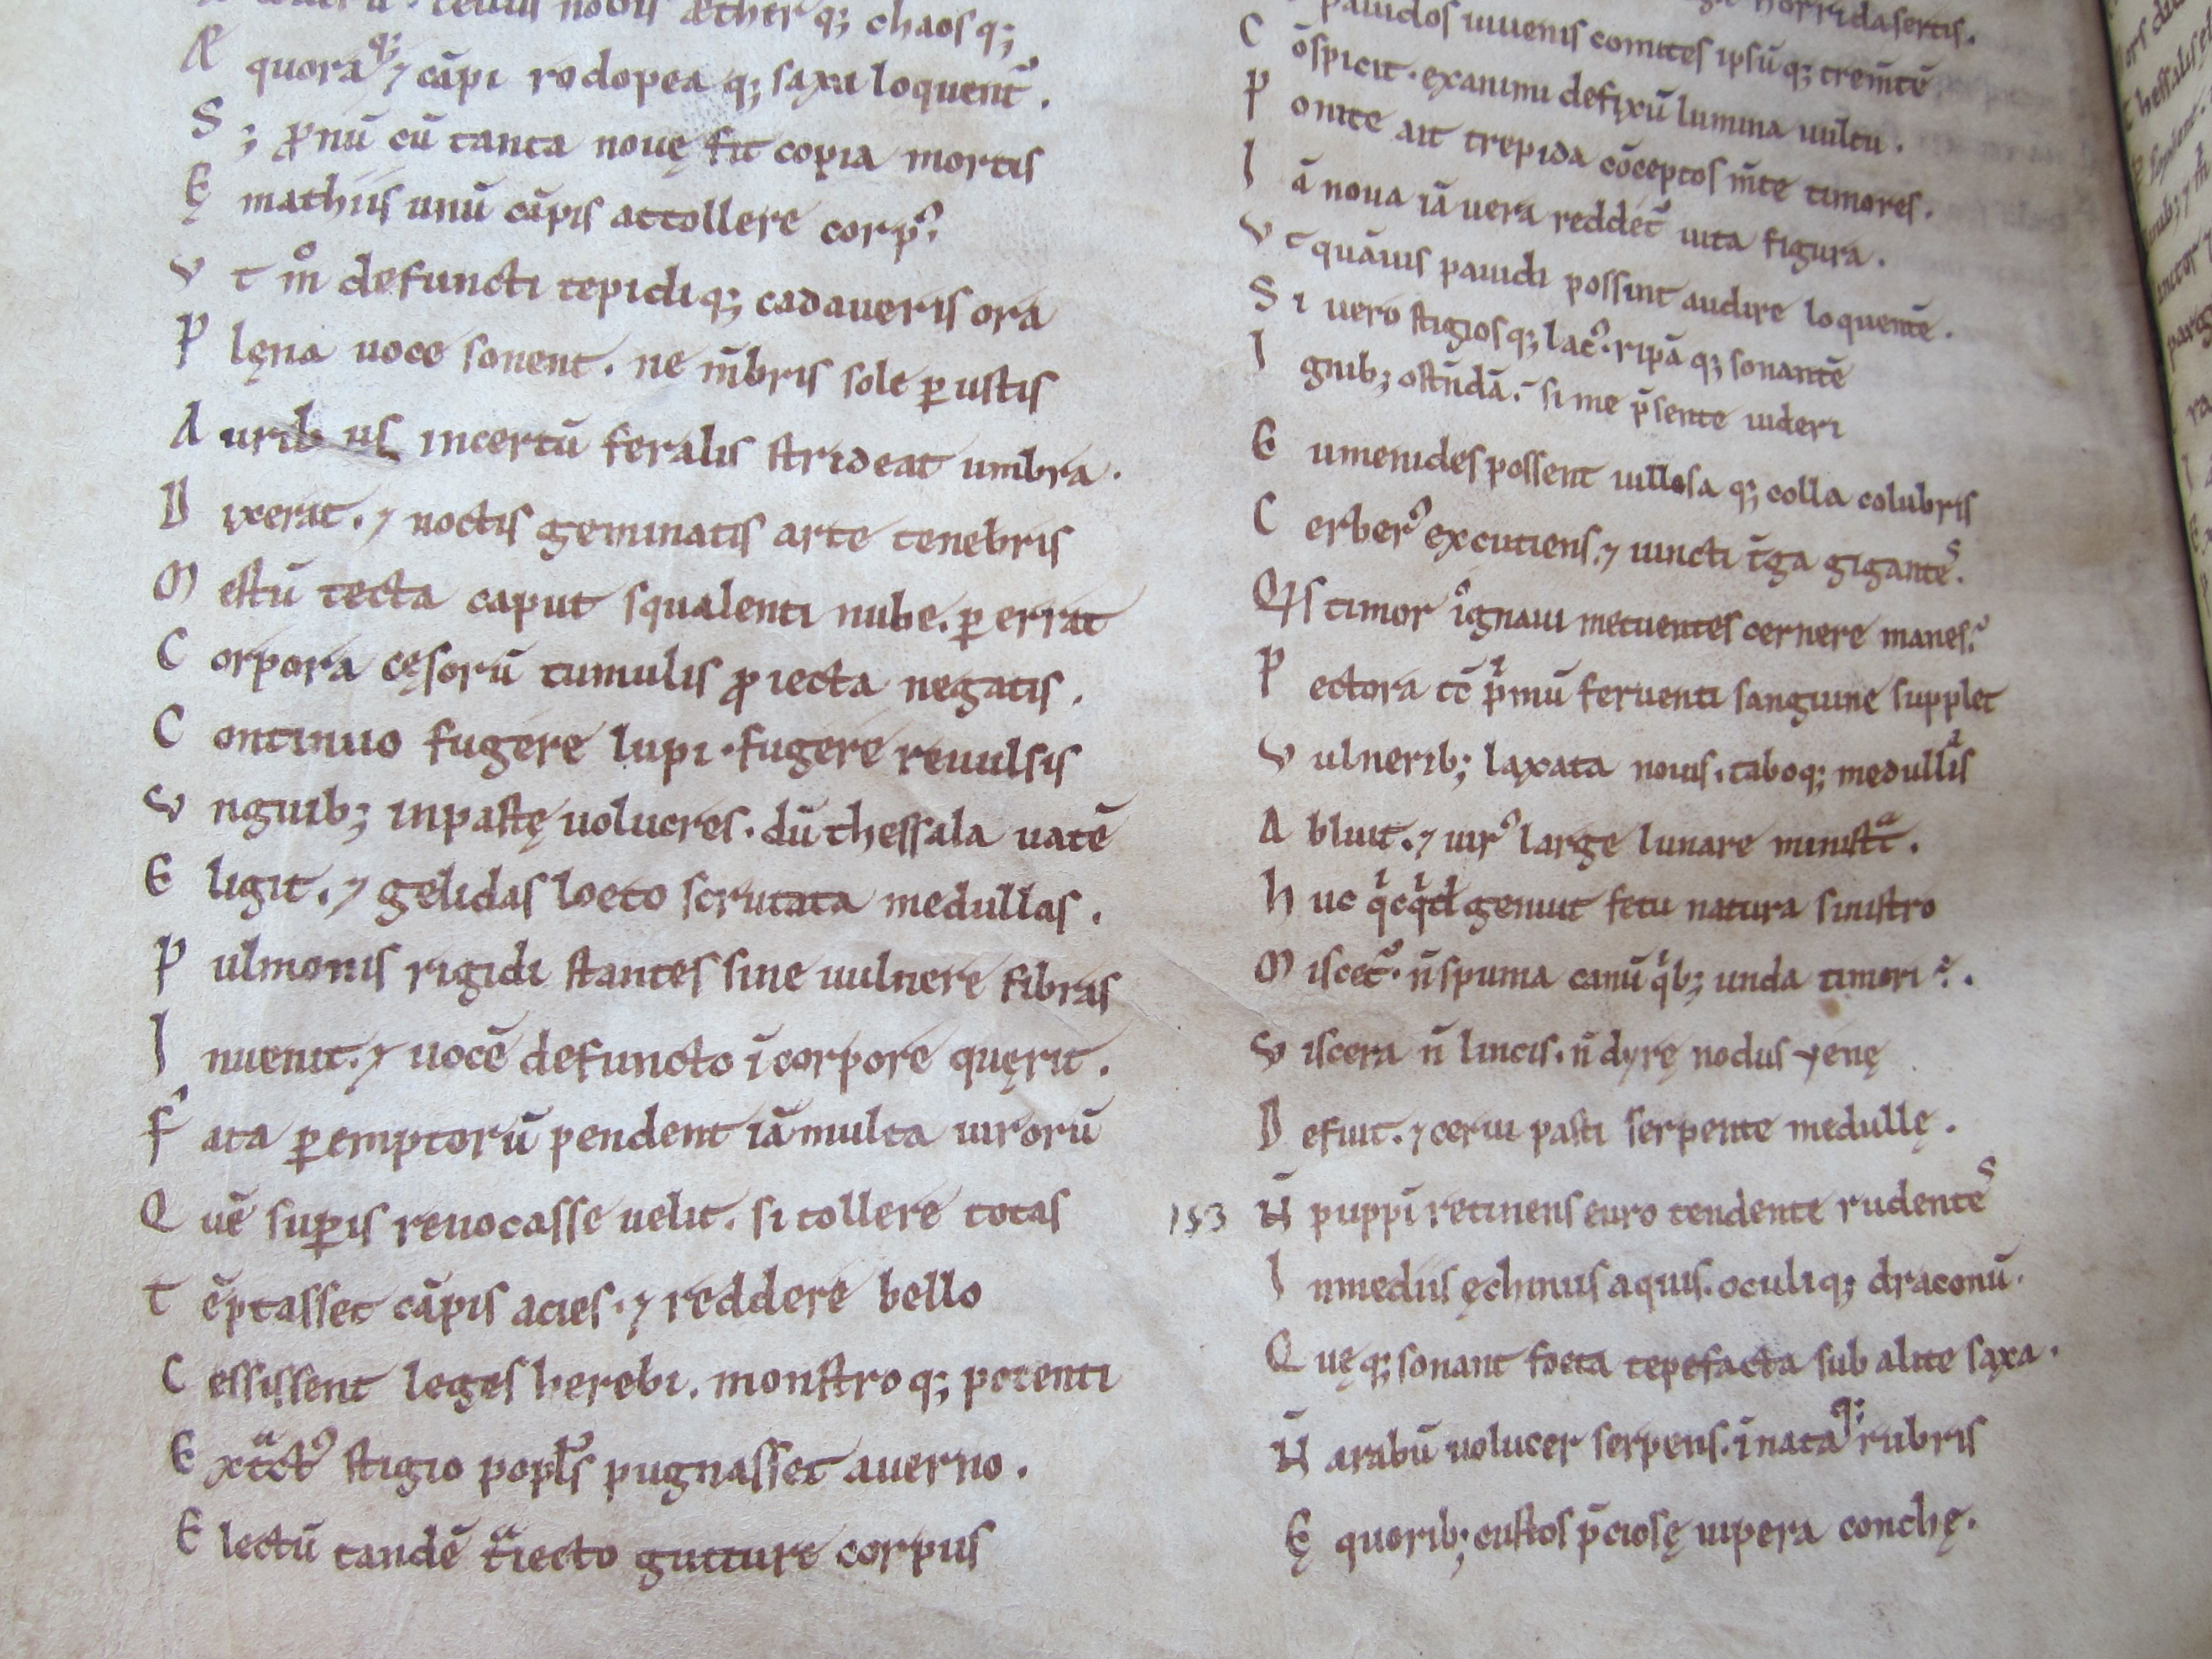 nobis ætherq; chaosq;
Æ quoraq; ⁊ cāpi rodopeaq; saxa loquent᷑.
S ; ꝓnū cū tanta nouę sit copia mortis
Ę mathiis unū cāpis attollere corpꝰ.
V t m̊ defuncti tepidiq; cadaueris ora
P lęna uoce sonent. ne m̄bris sole ꝑustis
A urib us incertū feralis strideat umbra.
D ixerat. ⁊ noctis geminatis arte tenebris
M estū tecta caput squalenti nube. ꝑerrat
C orpora cęsorū tumulis ꝓiecta negatis.
C ontinuo fugere lupi. fugere reuulsis
V nguib; inpastę uolucres. dū thessala uatē
E ligit. ⁊ gelidas loeto scrutata medullas.
P ulmonis rigidi stantes sine uulnere fibras
I nuenit. ⁊ uocē defuncto ī corpore quęrit.
F ata ꝑemptorū pendent iā multa uirorū
Q uē suꝑis reuocasse uelit. si tollere totas
T ēptasset cāpis acies. ⁊ reddere bello
C essissent leges herebi. monstroq; potenti
E xtͣctꝰ stigio popl̓s pugnasset auerno.
E lectū tandē tͣiecto gutture corpus
horrida sertis.
pauidos iuuenis comites ipsūq; trem̄tē
C ōspicit. exanimi defixū lumina uultu.
P onite ait trepida cōceptos m̄te timores.
I ā noua iā uera reddet᷑ uita figura.
V t quāuis pauidi possint audire loquentē.
S i uero stigiosq; lacꝰ. ripāq; sonantē
I gnib; ostn̄dā. si me p̄sente uideri
E umenides possent uillosaq; colla colubris
C erberꝰ excutiens. ⁊ iuncti t̄ga gigantes.
Q is timor ignaui metuentes cernere manes.
P ectora tc̄ pͥmū feruenti sanguine supplet
V ulnerib; laxata nouis. taboq; medullas
A bluit. ⁊ uirꝰ large lunare ministͣt.
H uc qͥcqͥd genuit fetu natura sinistro
M iscet᷑. n̄ spuma canū qͥb; unda timori ē.
V iscera n̄ lincis. n̄ dyrę nodus yenę
D efuit. ⁊ cerui pasti serpente medullę.
153 N̄ puppī retinens euro tendente rudentes
I nmediis ęchinus aquis. oculiq; draconū.
Q uęq; sonant foeta tepefacta sub alite saxa.
N̄ arabū uolucer serpens. īnataq; rubris
Ę quorib; custos p̄ciosę uipera conchę.